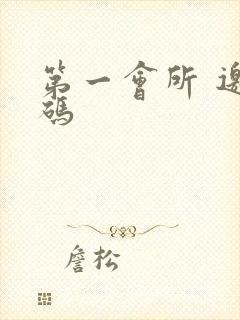 第一會所 邀
碼
詹松